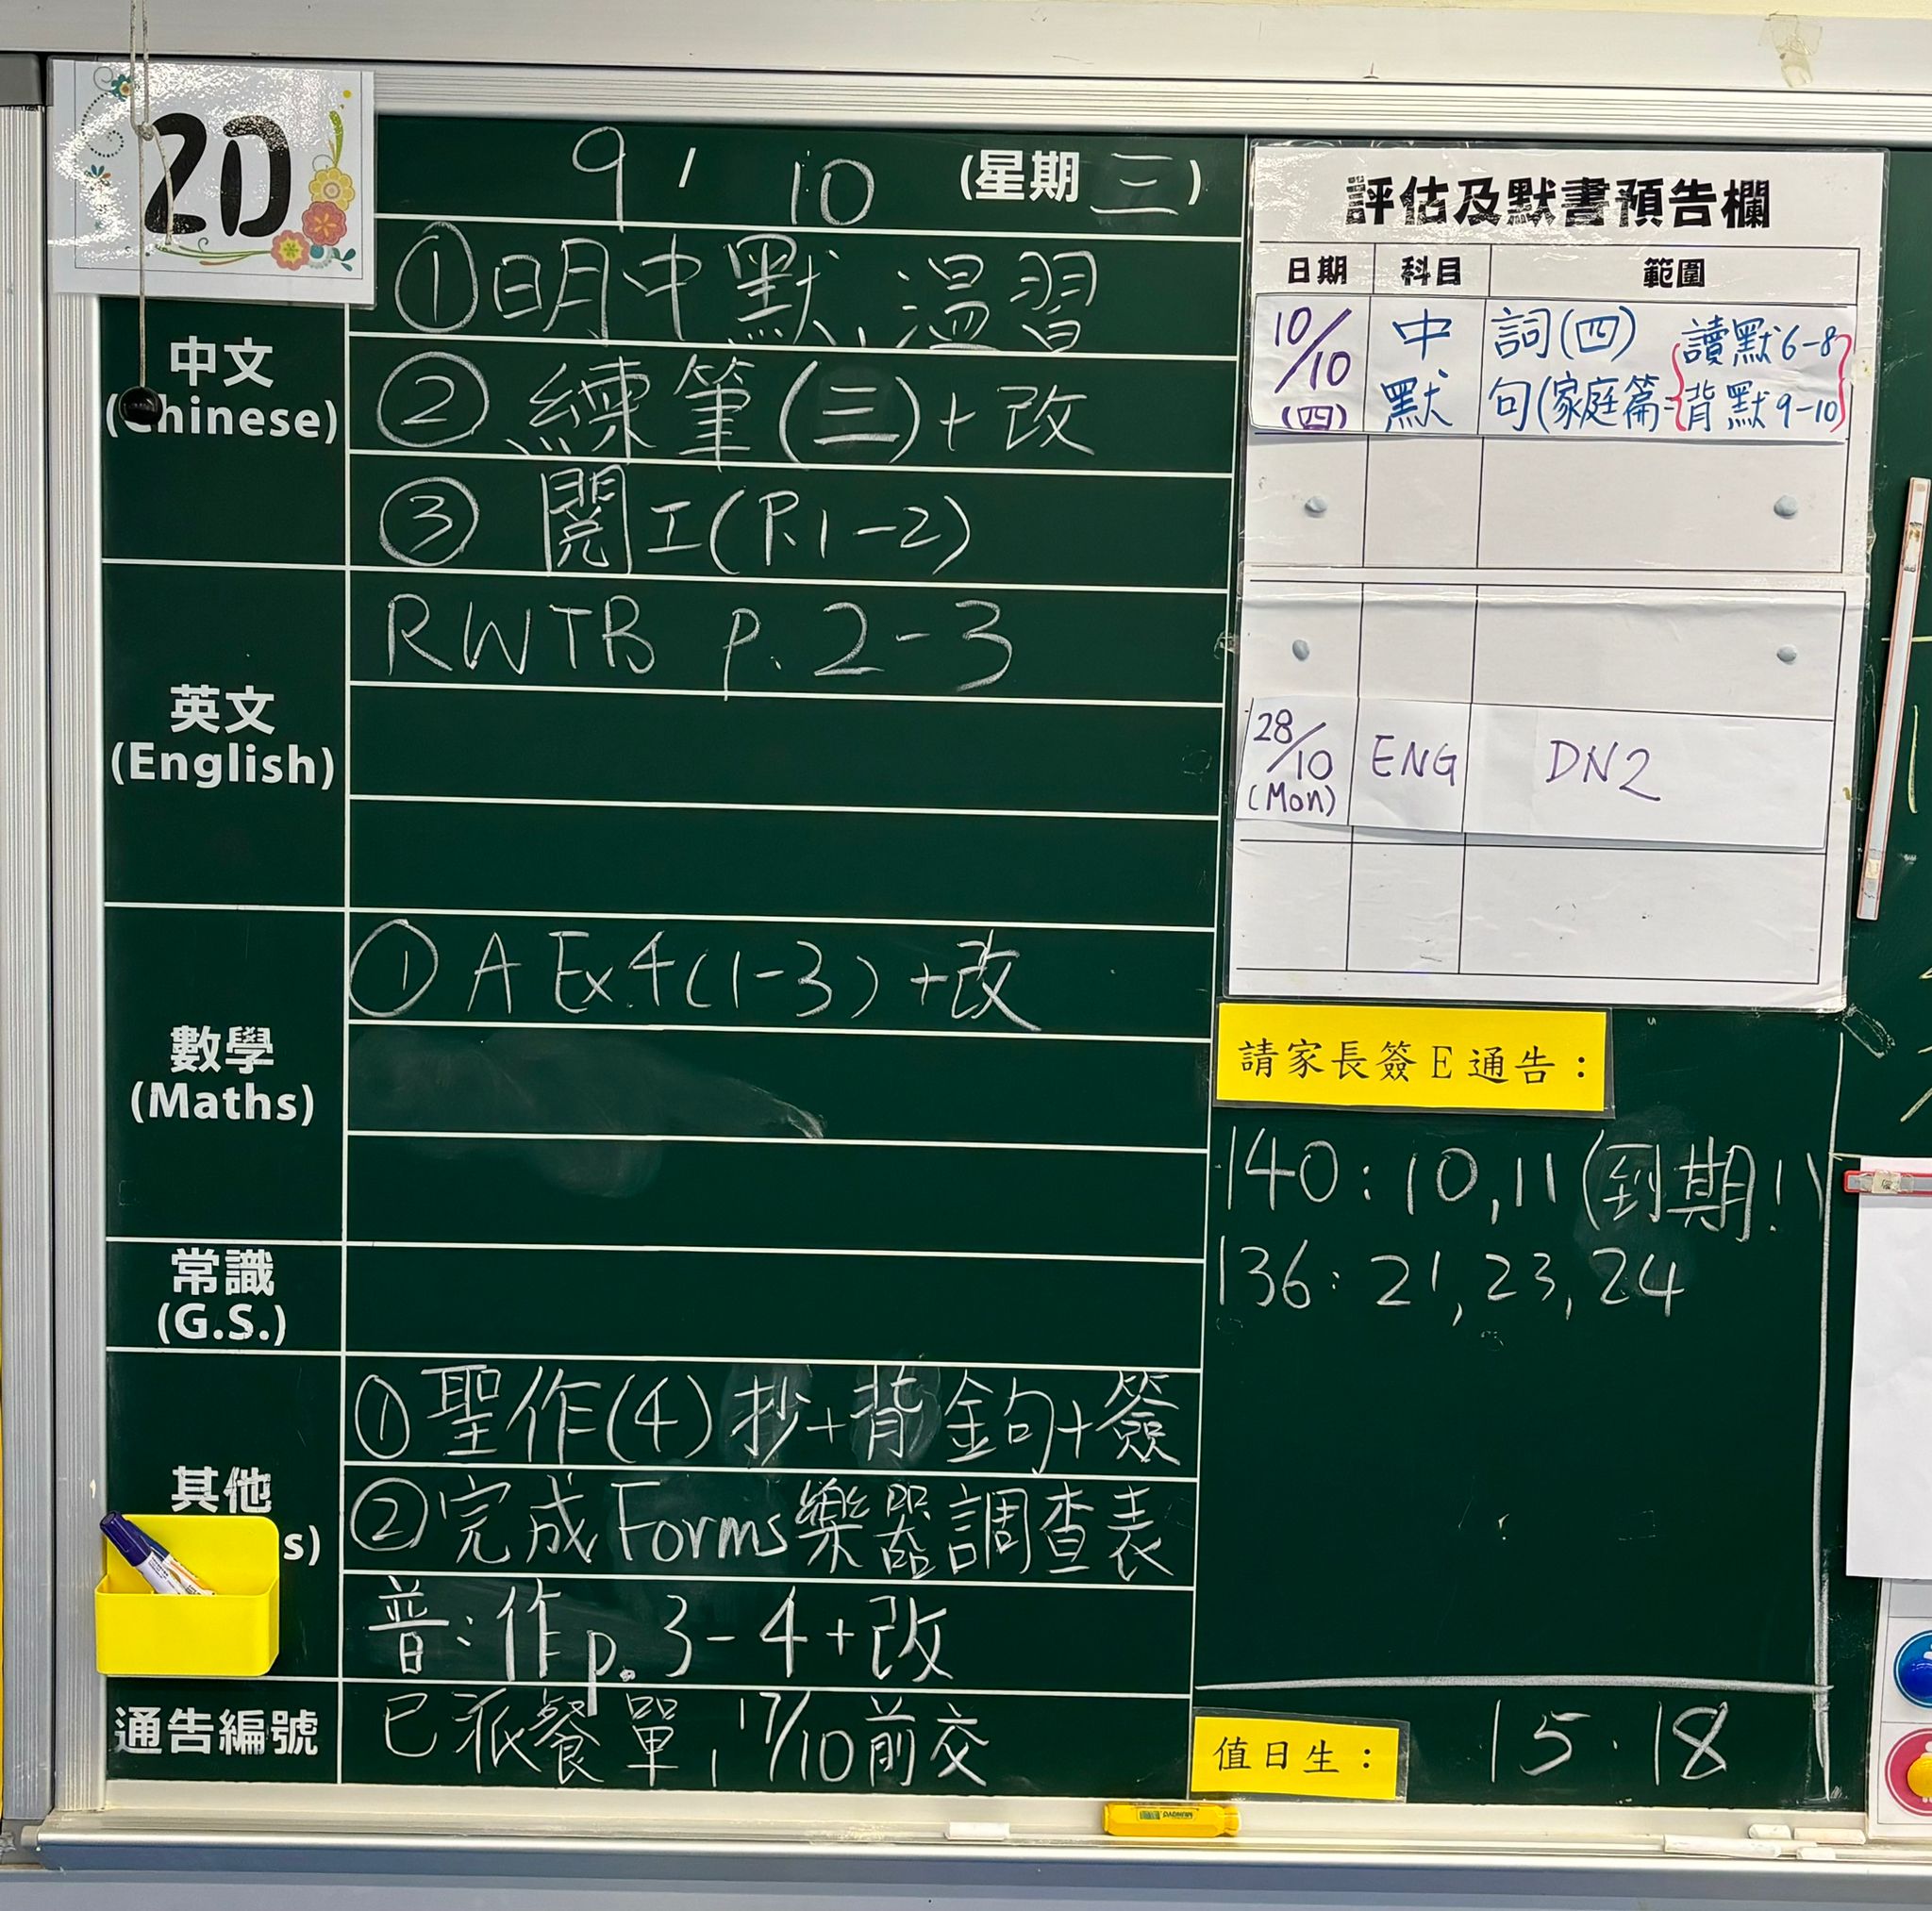 2D
9 / 10 (星期三)
中文
(Chinese)
①明中默,溫習
②練筆(三)+改
③閱工(P.1-2)
英文
(English)
RWTB p.2-3
數學
(Maths)
①A Ex.4(1-3)+改
常識
(G.S.)
其他
s)
①聖作(4)抄+背金句+簽
②完成Forms樂器調查表
普:作p.3-4+改
通告編號
已派餐單,17/10前交
評估及默書預告欄
日期 科目 範圍
10/10 (四) 中默 詞(四)
句(家庭篇-{讀默6-8 背默9-10}
28/10 (Mon) ENG DN2
請家長簽E通告:
140:10,11(到期!)
136:21,23,24
值日生: 15.18